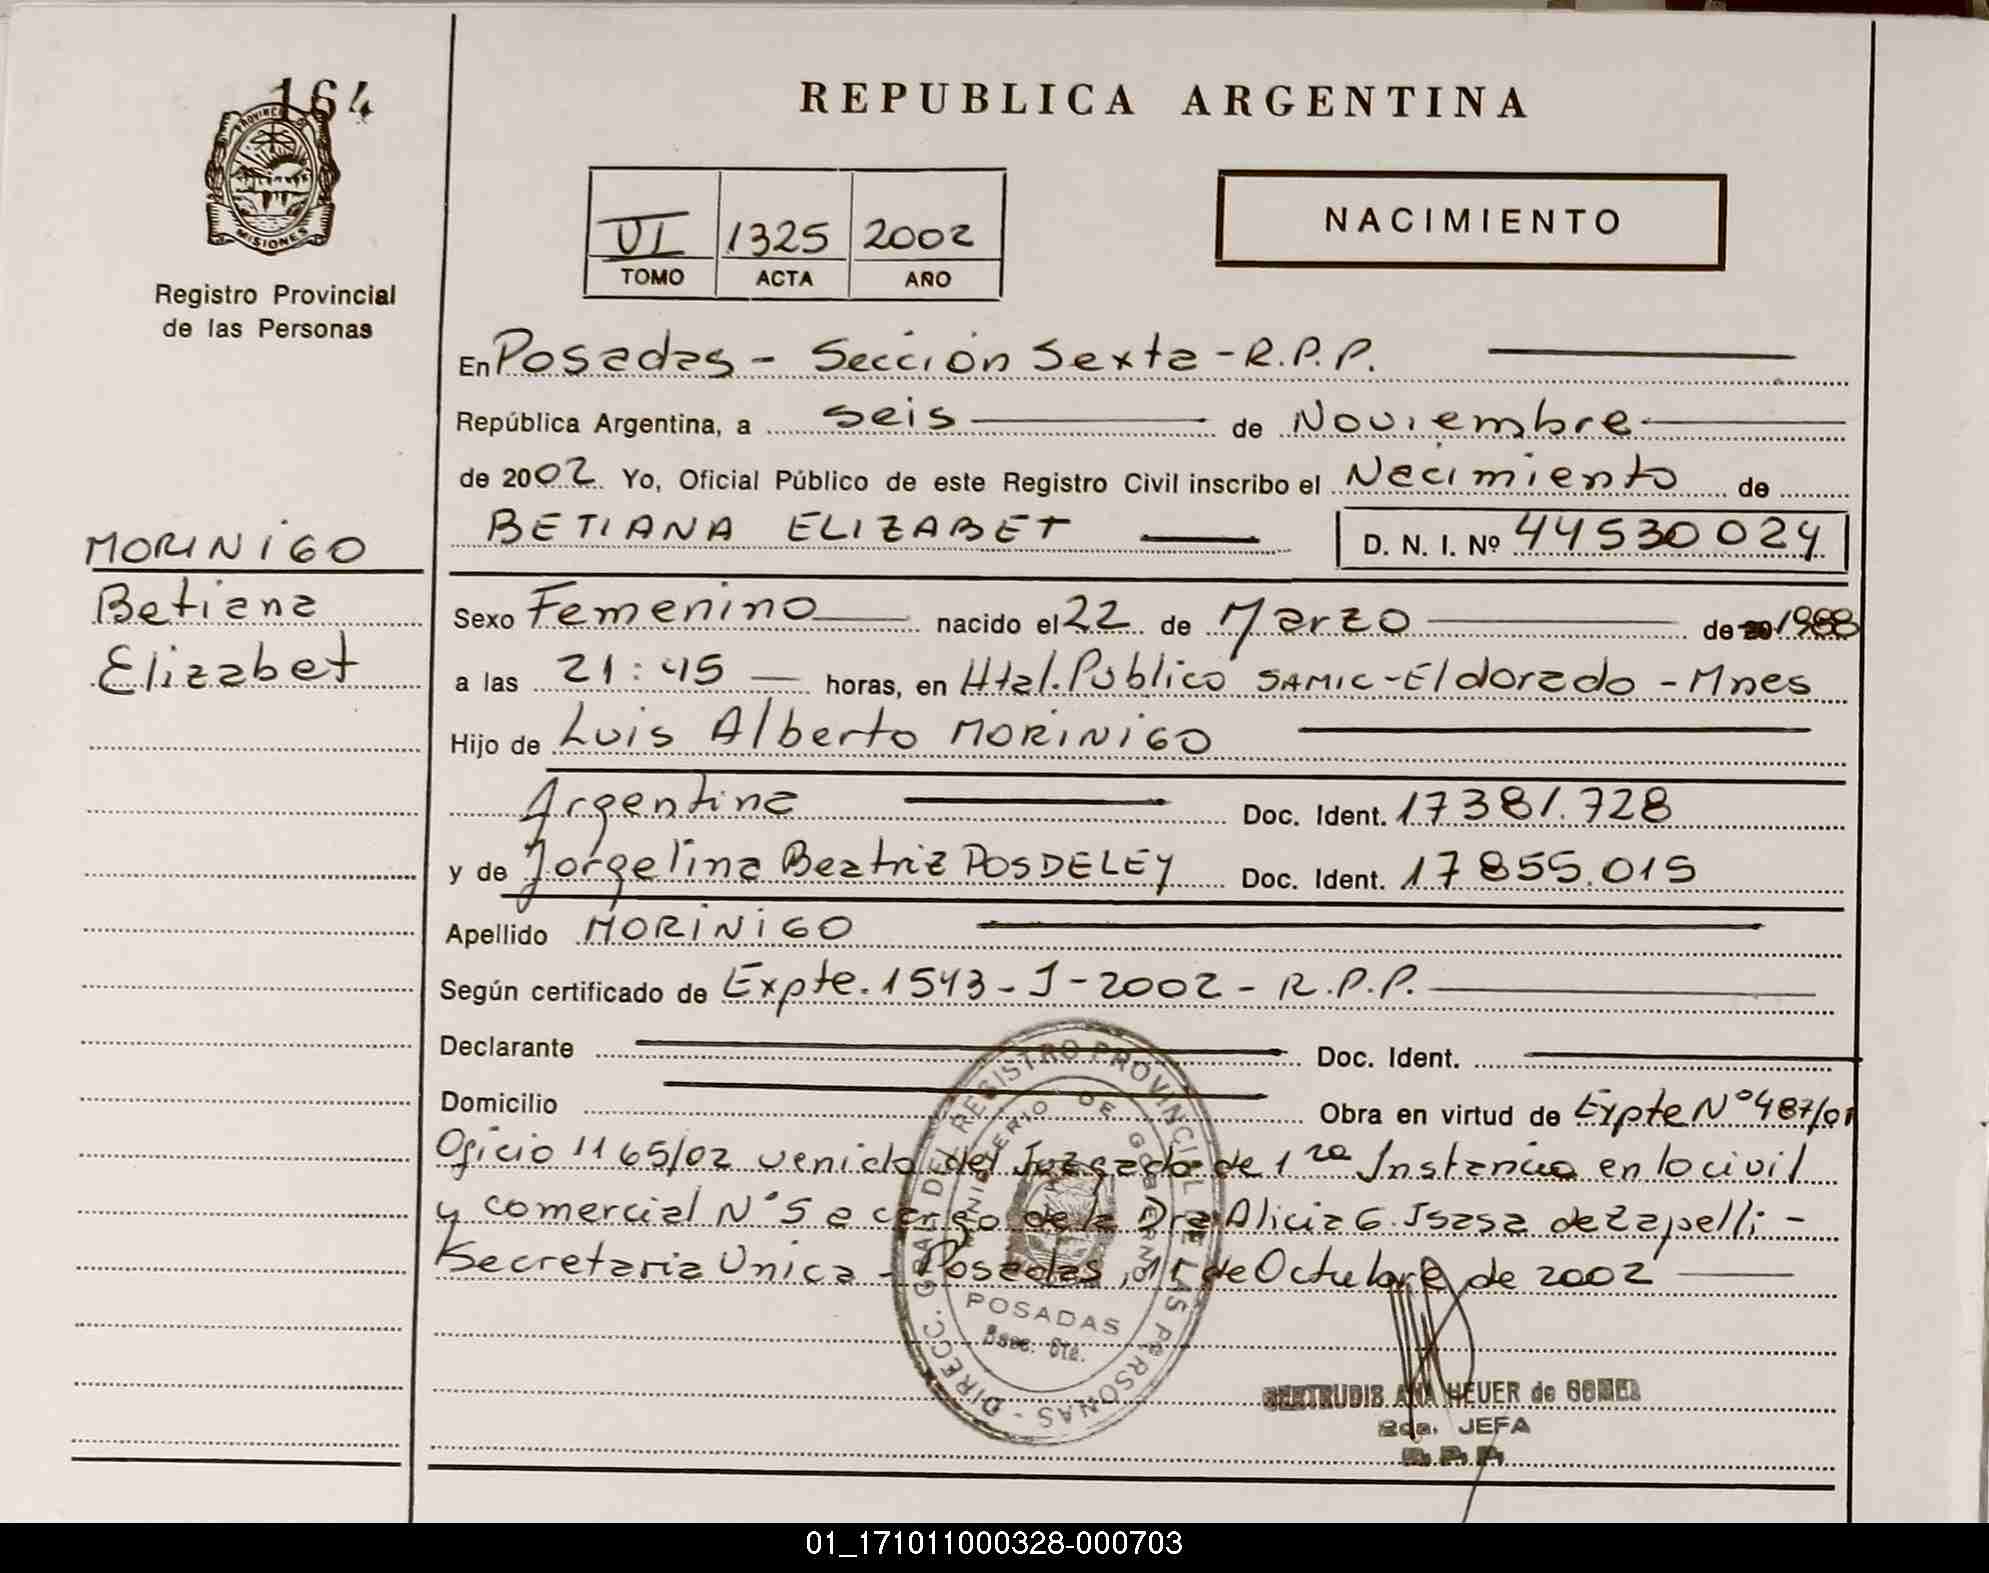 164
PROVINCIA DE
MISIONES
Registro Provincial
de las Personas
REPUBLICA ARGENTINA
VI 1325 2002
TOMO ACTA AÑO
NACIMIENTO
En Posadas - Sección Sexta - R.P.P.
República Argentina, a seis de Noviembre
de 2002 Yo, Oficial Público de este Registro Civil inscribo el Nacimiento de
BETIANA ELIZABET D. N. I. Nº 44530024
MORINIGO
Betiana
Elizabet
Sexo Femenino nacido el 22 de Marzo de 1988
a las 21:45 horas, en Htal. Publico SAMIC - Eldorado - Mnes
Hijo de Luis Alberto MORINIGO
Argentina Doc. Ident. 17381.728
y de Jorgelina Beatriz POSDELEY Doc. Ident. 17855.015
Apellido MORINIGO
Según certificado de Expte. 1543 - J - 2002 - R.P.P.
Declarante Doc. Ident.
Domicilio Obra en virtud de Expte Nº 487/01
Oficio 1165/02 venido del Juzgado de 1ra Instancia en lo civil
y comercial Nº 5 a cargo de la Dra Alicia G. Isasa de Zapelli -
Secretaria Unica - Posadas, de Octubre de 2002
DIRECC. GRAL DEL REGISTRO PROVINCIAL DE LAS PERSONAS
MINISTERIO DE GOBIERNO
POSADAS
GERTRUDIS ANA HEUER de GOMEZ
2da. JEFA
R.P.P.
01_171011000328-000703